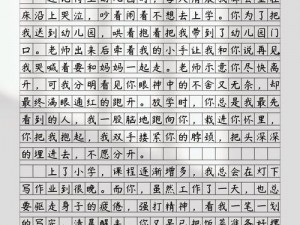 床沿上哭泣，吵着闹着不想去上学。你为了把
我送到幼儿园，哄着抱着把我带到了幼儿园门
口。老师出来后牵着我的小手让我和你说再见
我哭喊着要和妈妈一起走。老师示意你尽快离
开，可我分明看见你眼神中的不舍又无奈，却
最终满眼通红的跑开。放学时，你总是我最先
看到的人，我一股脑地跑向你，我进你怀里，
你把我抱起，我双手搂紧你的脖颈，把头深深
的埋进去，不愿分开。
上了小学，课程逐渐增多，我总会在灯下
写作业到很晚。而你，虽然工作了一天，也总
要驱走身子的疲倦，强打精神，看我一笔一划
的写完，清晨醒来，你又早已把饭菜准备好摆